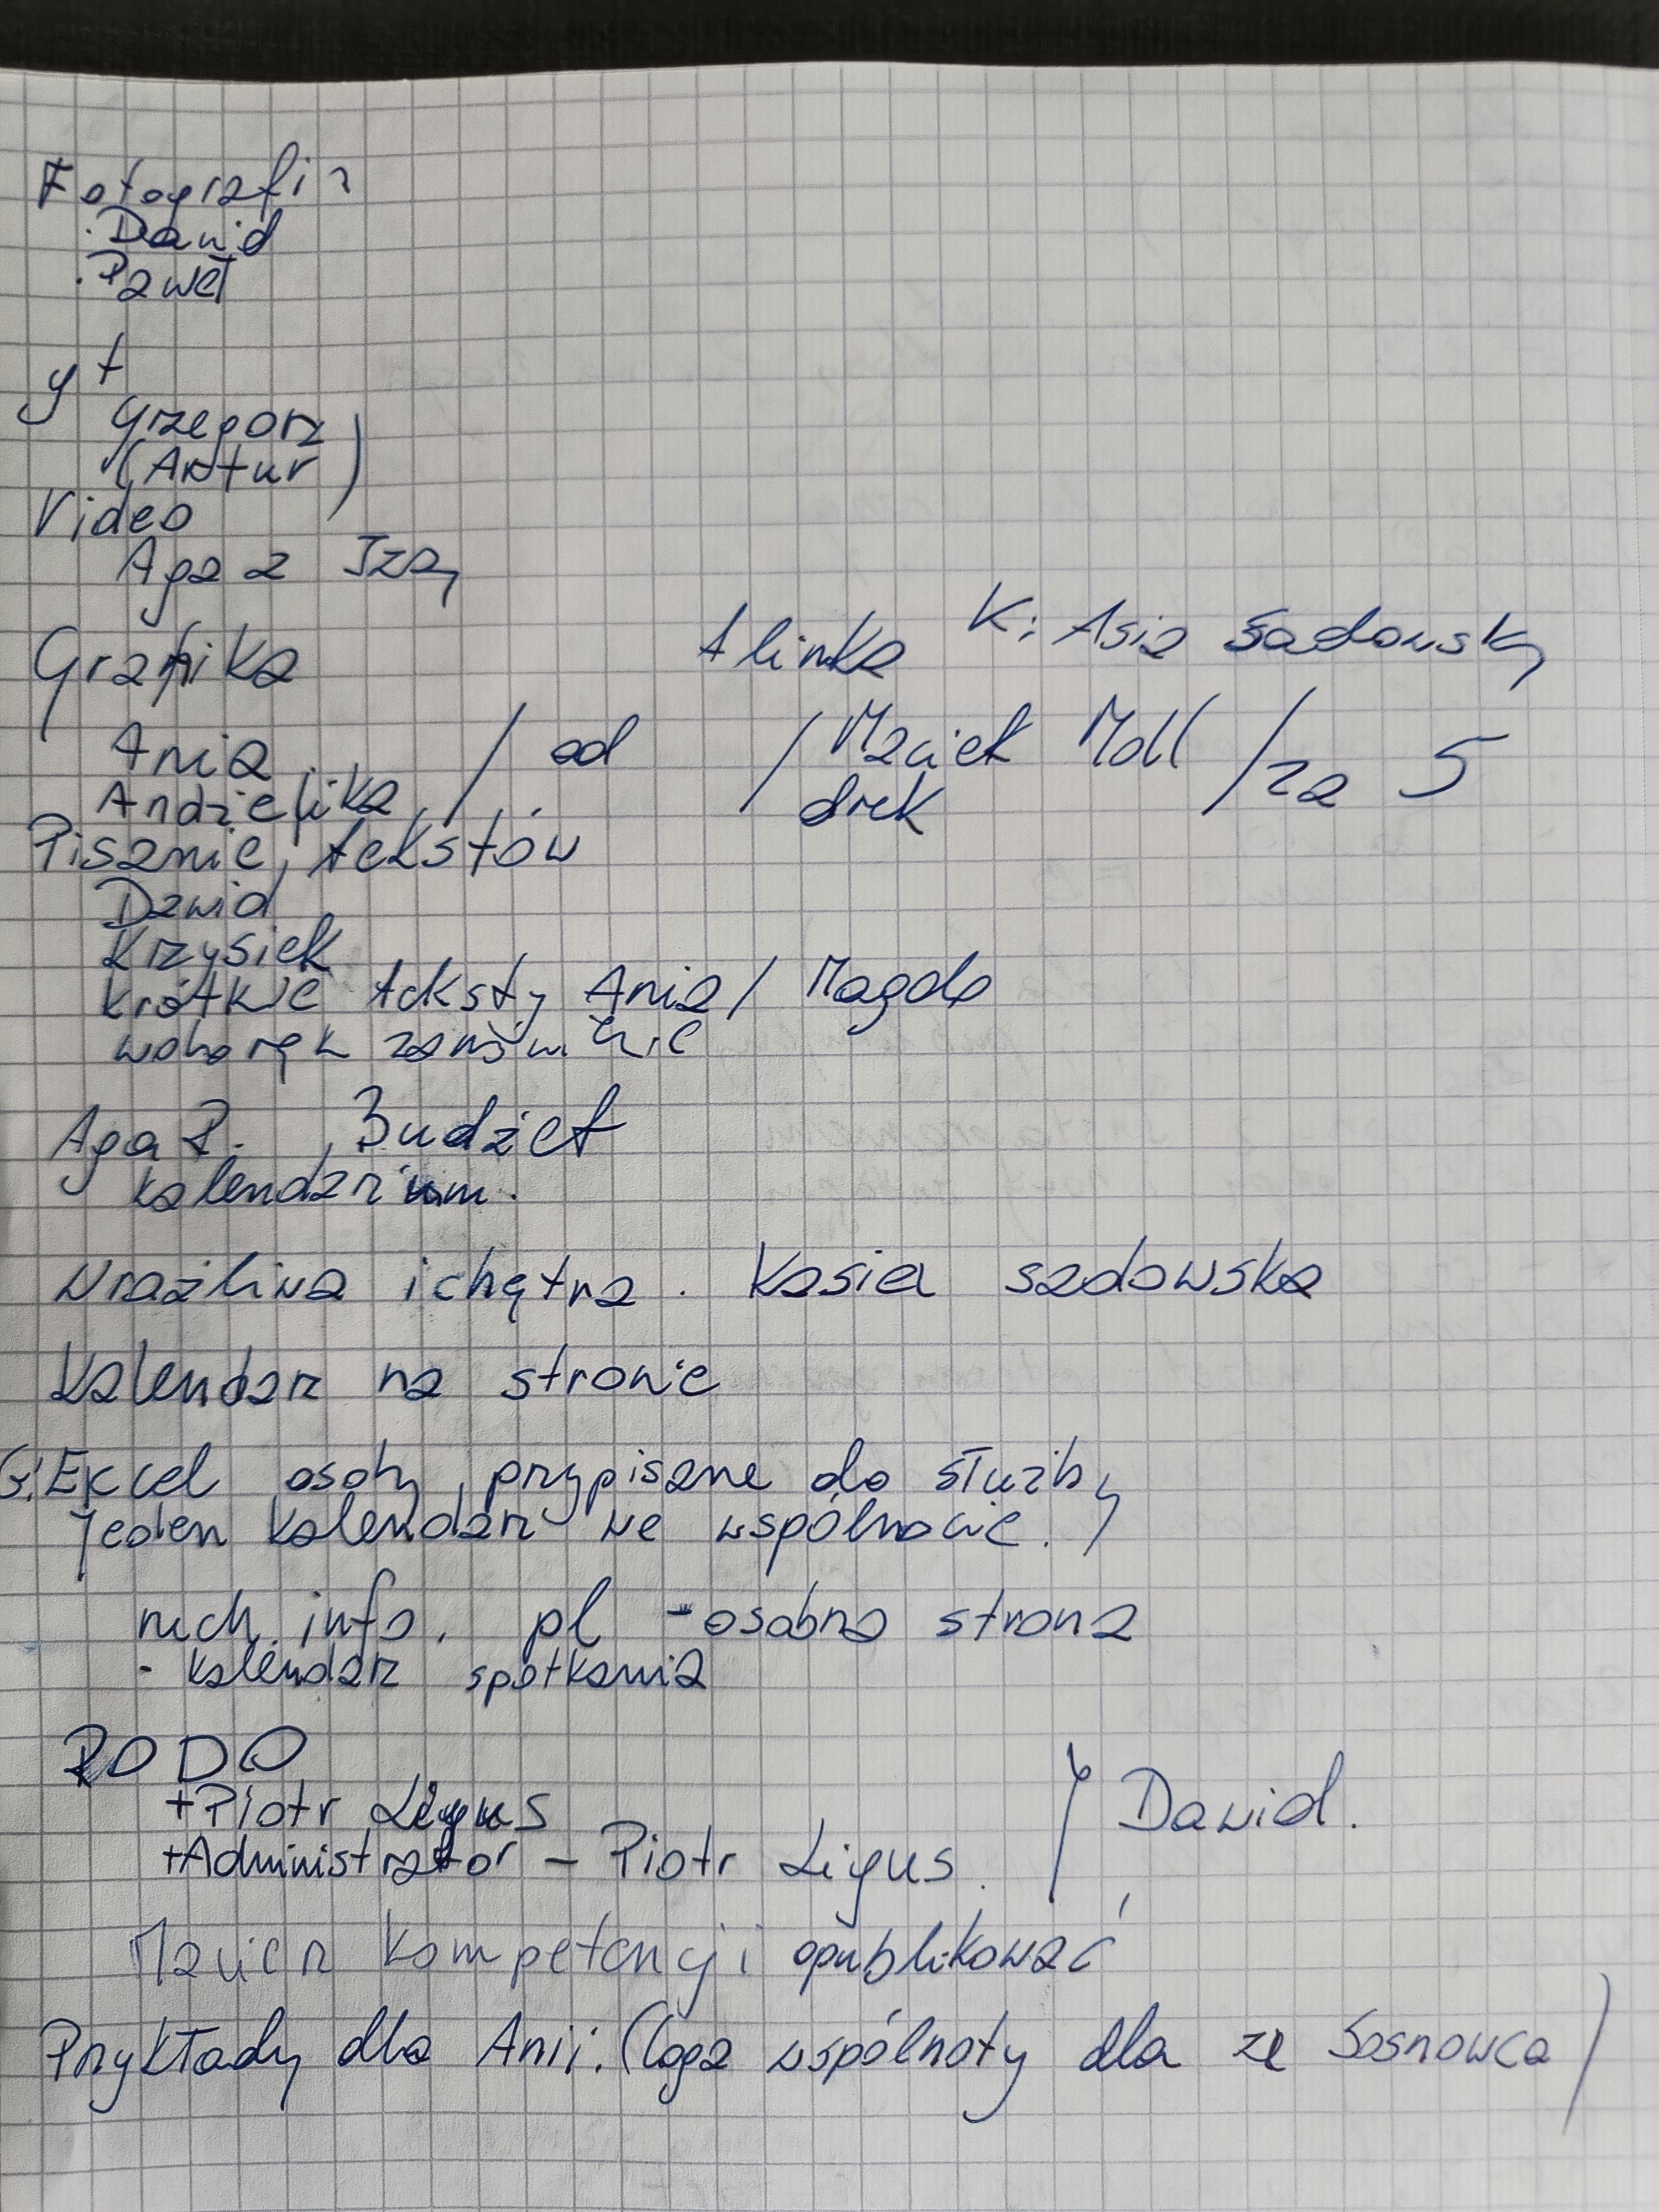 Fotografia
· Dawid
· Paweł
yt
Grzegorz
(Artur)
Video
Aga z Izą
Grafika
Alinka K: Asia Sadowską
Ania / od / Maciek Moll / za 5
Andżelika druk
Pisanie tekstów
Dawid
Krzysiek
krótkie teksty Ania / Magda
Aga P. Budżet
kalendarium.
Wrażliwa i chętna. Kasia Sadowska
Kalendarz na stronie
G: Excel osoby przypisane do służby
jeden kalendarz we wspólnocie.
ruch. info. pl - osobna strona
- kalendarz spotkania
RODO
+ Piotr Ligus
+ Administrator - Piotr Ligus. } Dawid.
Macierz kompetencji opublikować
Przykłady dla Anii. (loga wspólnoty dla ze Sosnowca)